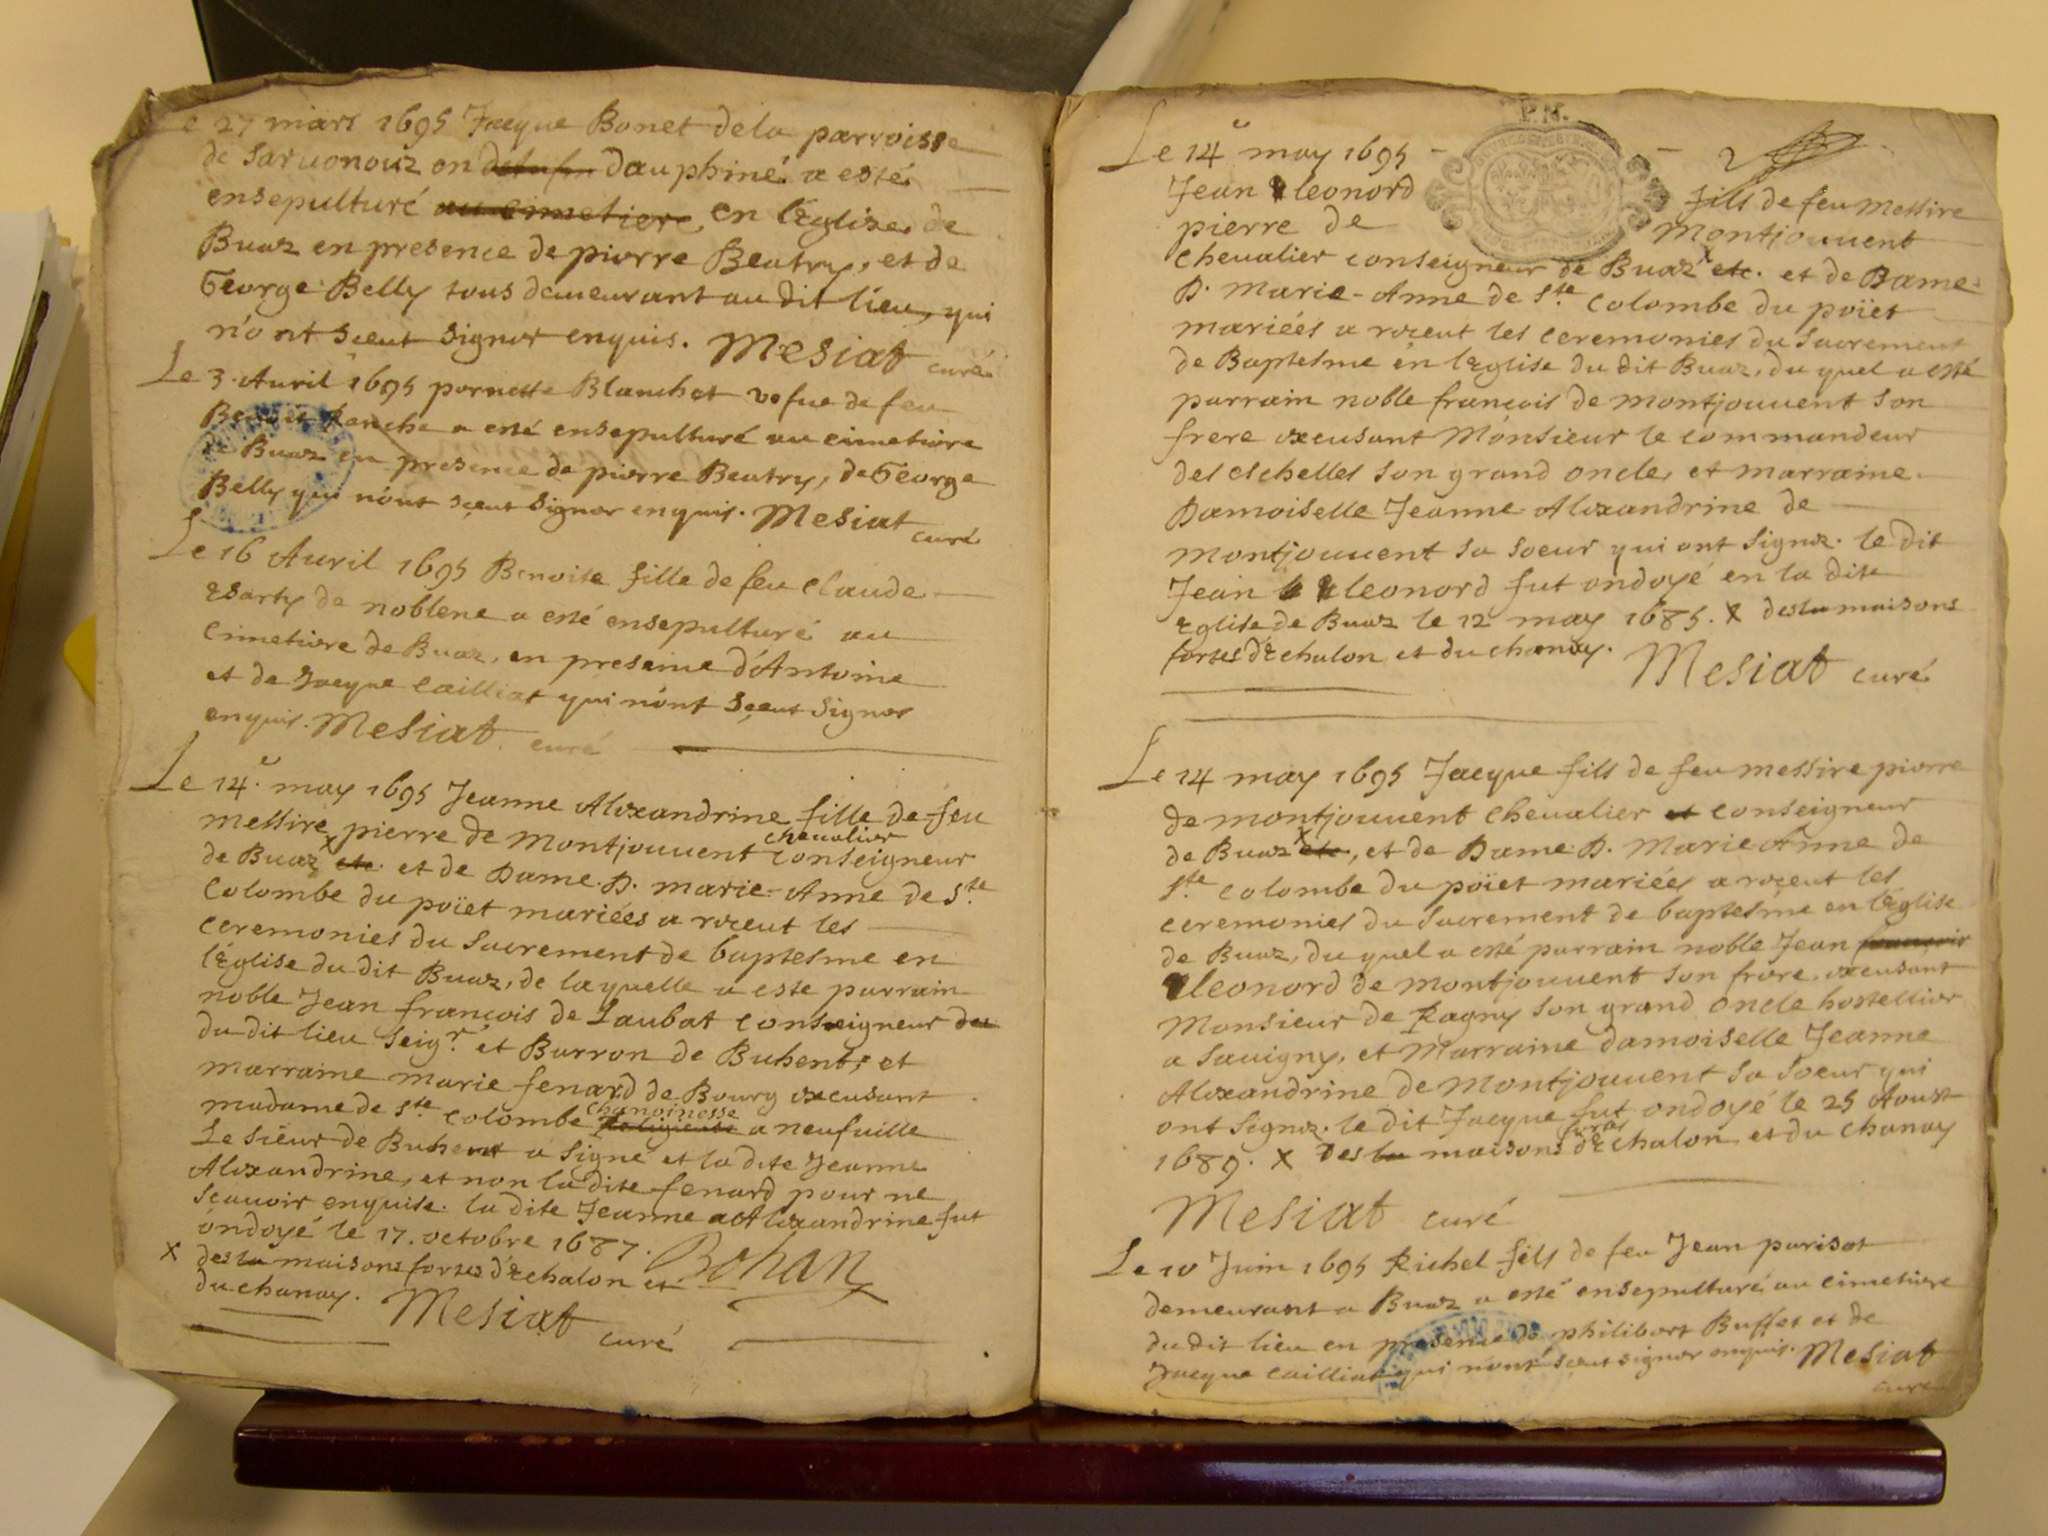 Le 27 mars 1695 Jacque Bonet de la parroisse
de Saruonouz en dauphiné a esté
ensepulturé au cimetiere en l'Eglise de
Buaz en presence de pierre Beatry, et de
George Belly tous demeurant au dit lieu, qui
n'ont sceut signer enquis. Mesiat curé
Le 3. Auril 1695 pernette Blanchet vefue de feu
a esté ensepulturé au cimetiere
de Buaz en presence de pierre Beatry, de George
Belly qui n'ont sceut signer enquis. Mesiat curé
Le 16 Auril 1695 Benoite fille de feu Claude
de noblene a esté ensepulturé au
cimetiere de Buaz, en presence d'Antoine
et de Jacque Cailliat qui n'ont sceut signer
enquis. Mesiat curé
Le 14.e may 1695 Jeanne Alexandrine fille de feu
messire pierre de Montjouuent chevalier conseigneur
de Buaz x etc. et de Dame D. marie-Anne de S.te
Colombe du poïet mariées a receut les
ceremonies du Sacrement de baptesme en
l'Eglise du dit Buaz, de laquelle a este parrain
noble Jean françois de Laubat conseigneur du
du dit lieu seig.r et Barron de Buhent; et
marraine marie fenard de Bourg excusant
madame de S.te Colombe chanoinesse Religieuse a neufuille
Le Sieur de Buhent a signé et la dite Jeanne
Alexandrine, et non la dite fenard pour ne
scauoir enquise. la dite Jeanne Alexandrine fut
ondoyé le 17. octobre 1687. Bohan
x des la maisons fortes d'Echalon et
du chanay. Mesiat curé
P.N.
2
Le 14.e may 1695
Jean leonord fils de feu Messire
pierre de Montjouuent
Cheualier conseigneur de Buaz x etc. et de Dame
D. Marie-Anne de S.te Colombe du poïet
mariées a receut les ceremonies du Sacrement
de Baptesme en l'Eglise du dit Buaz, du quel a esté
parrain noble françois de montjouuent son
frere excusant Monsieur le commandeur
des eschelles son grand oncle, et marraine
Damoiselle Jeanne Alexandrine de
montjouuent sa soeur qui ont signez. le dit
Jean leonord fut ondoyé en la dite
Eglise de Buaz le 12 may 1685. x des la maisons
fortes d'Echalon et du chanay. Mesiat curé
Le 14 may 1695 Jacque fils de feu messire pierre
de montjouuent Cheualier et conseigneur
de Buaz x etc, et de Dame D. Marie Anne de
S.te Colombe du poïet mariées a receut les
ceremonies du Sacrement de baptesme en l'Eglise
de Buaz, du quel a esté parrain noble Jean francois
leonord de montjouuent son frere excusant
Monsieur de Ragny son grand oncle hostellier
a Sauigny, et Marraine damoiselle Jeanne
Alexandrine de Montjouuent sa soeur qui
ont signez. le dit Jacque fut ondoyé le 25 Aoust
1689. x des la maisons fortes d'Echalon et du Chanay
Mesiat curé
Le 10 Juin 1695 Richel fils de feu Jean parisot
demeurant a Buaz a esté ensepulturé au cimetiere
du dit lieu en presence de philibert Buffet et de
Jacque Cailliat qui n'ont sceut signer enquis. Mesiat
curé